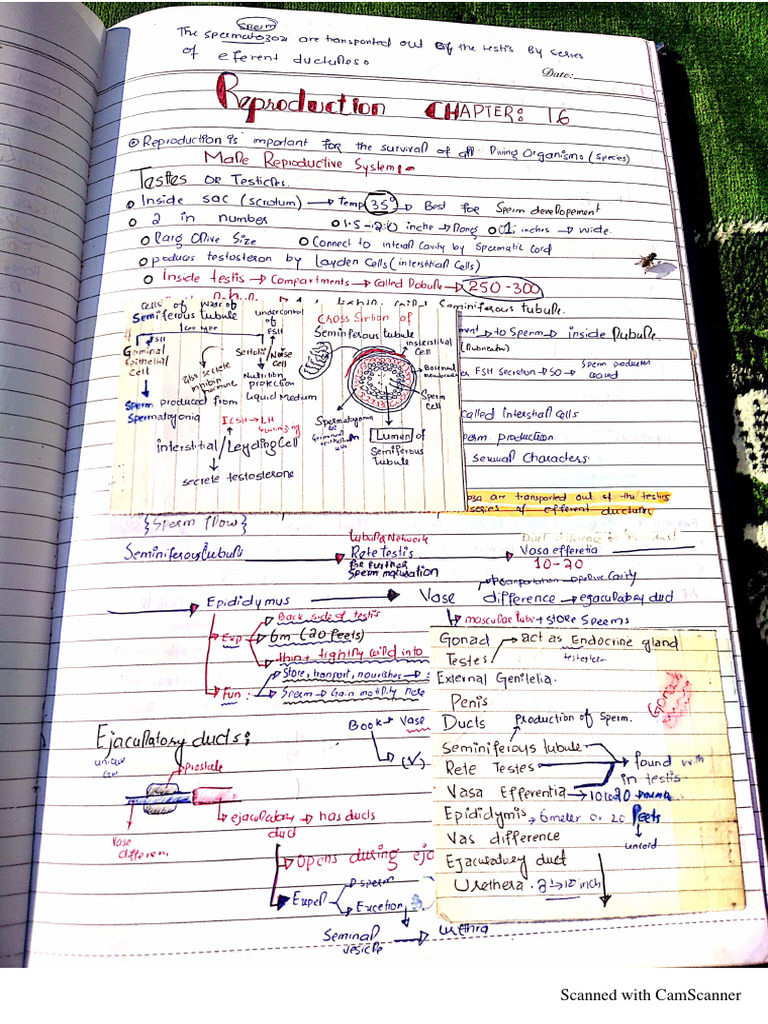 Sperm
The spermatozoa are transported out of the testis By series
of efferent ductules.
Date:
Reproduction CHAPTER: 16
Reproduction is important for the survival of all Living Organisms (Species)
Male Reproductive System:-
Testies OR Testicles.
Inside sac (scrotum) → Temp 35° → Best for Sperm developement
2 in number 1.5-2.0 inche → long 01 inches → wide.
Larg Olive Size Connect to interal Cavity by Spermatic Cord
poduces testosteron by Leyden Cells (interstitial Cells)
Inside testis → Compartments → Called Lobule → 250-300
Seminiferous tubule.
Cells of wase of
Semiferous tubule
undercontrol
of
FSH
FSH
Germinal
Epithelial
Cell
Also secrete
inhibin
harmone
Sertoli/Nurse
Cell
Nutrition
protection
Liquid Medium
Sperm produced from
Spermatogonia
ICSH → LH
interstitial/Leyding Cell
secrete testosterone
Cross Section of
Seminiferous tubule
insterstitial
Cell
Basement
membrane
Sperm
Cell
Spermatogonia
or
Germinal
epithelium
Lumen of
Semiferous
Tubule
ment → to Sperm → inside Lubule.
(Lubricator)
er FSH Secretion → SO → Sperm production
ceased
called Interstitial Cells
perm production
sexual Characters
zoa are transported out of the testis
series of efferent ductules
{Sperm flow}
Seminiferous tubule → Rete testis → Vasa efferetia
tubular Network
for further
Sperm maturation
10-20
→ Epididymus → Vase difference → egaculabey duct
Transportation → pelive Cavity
mascular tube + store Speems
Exp
Back side of testis
6m (20 feets)
thin + tightly coild into
Fun:
Store, tranport, nourishes
Sperm → Gain motility here
Book → Vase
(V)
Ejaculatory ducts:
prostate
ejaculabory → has ducts
duct
Vase
differen.
Opens during ejac
Expel
sperm
Excetion
Seminal
vesicle
→ urethra
Gonad → act as Endocrine gland
Testes
External Genitelia.
Penis
Ducts
Production of Sperm.
Seminiferoys tubule
Rete Testes → found with
in testis
Vasa Efferentia → 10 to 20
Epididymis → 6 meter or 20 Feets
Vas difference
Ejaculatory duct
Urethera. 8 → 10 inch
Gonads
Scanned with CamScanner